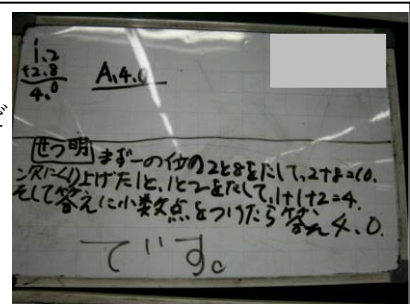 1
1.2
+2.8
4.0
A.4.0
せつ明 まず一の位の2と8をたして、2+8=10.
次にくり上げた1と、1と2をたして、1+1+2=4.
そして答えに小数点をつけたら答え4.0.
です。